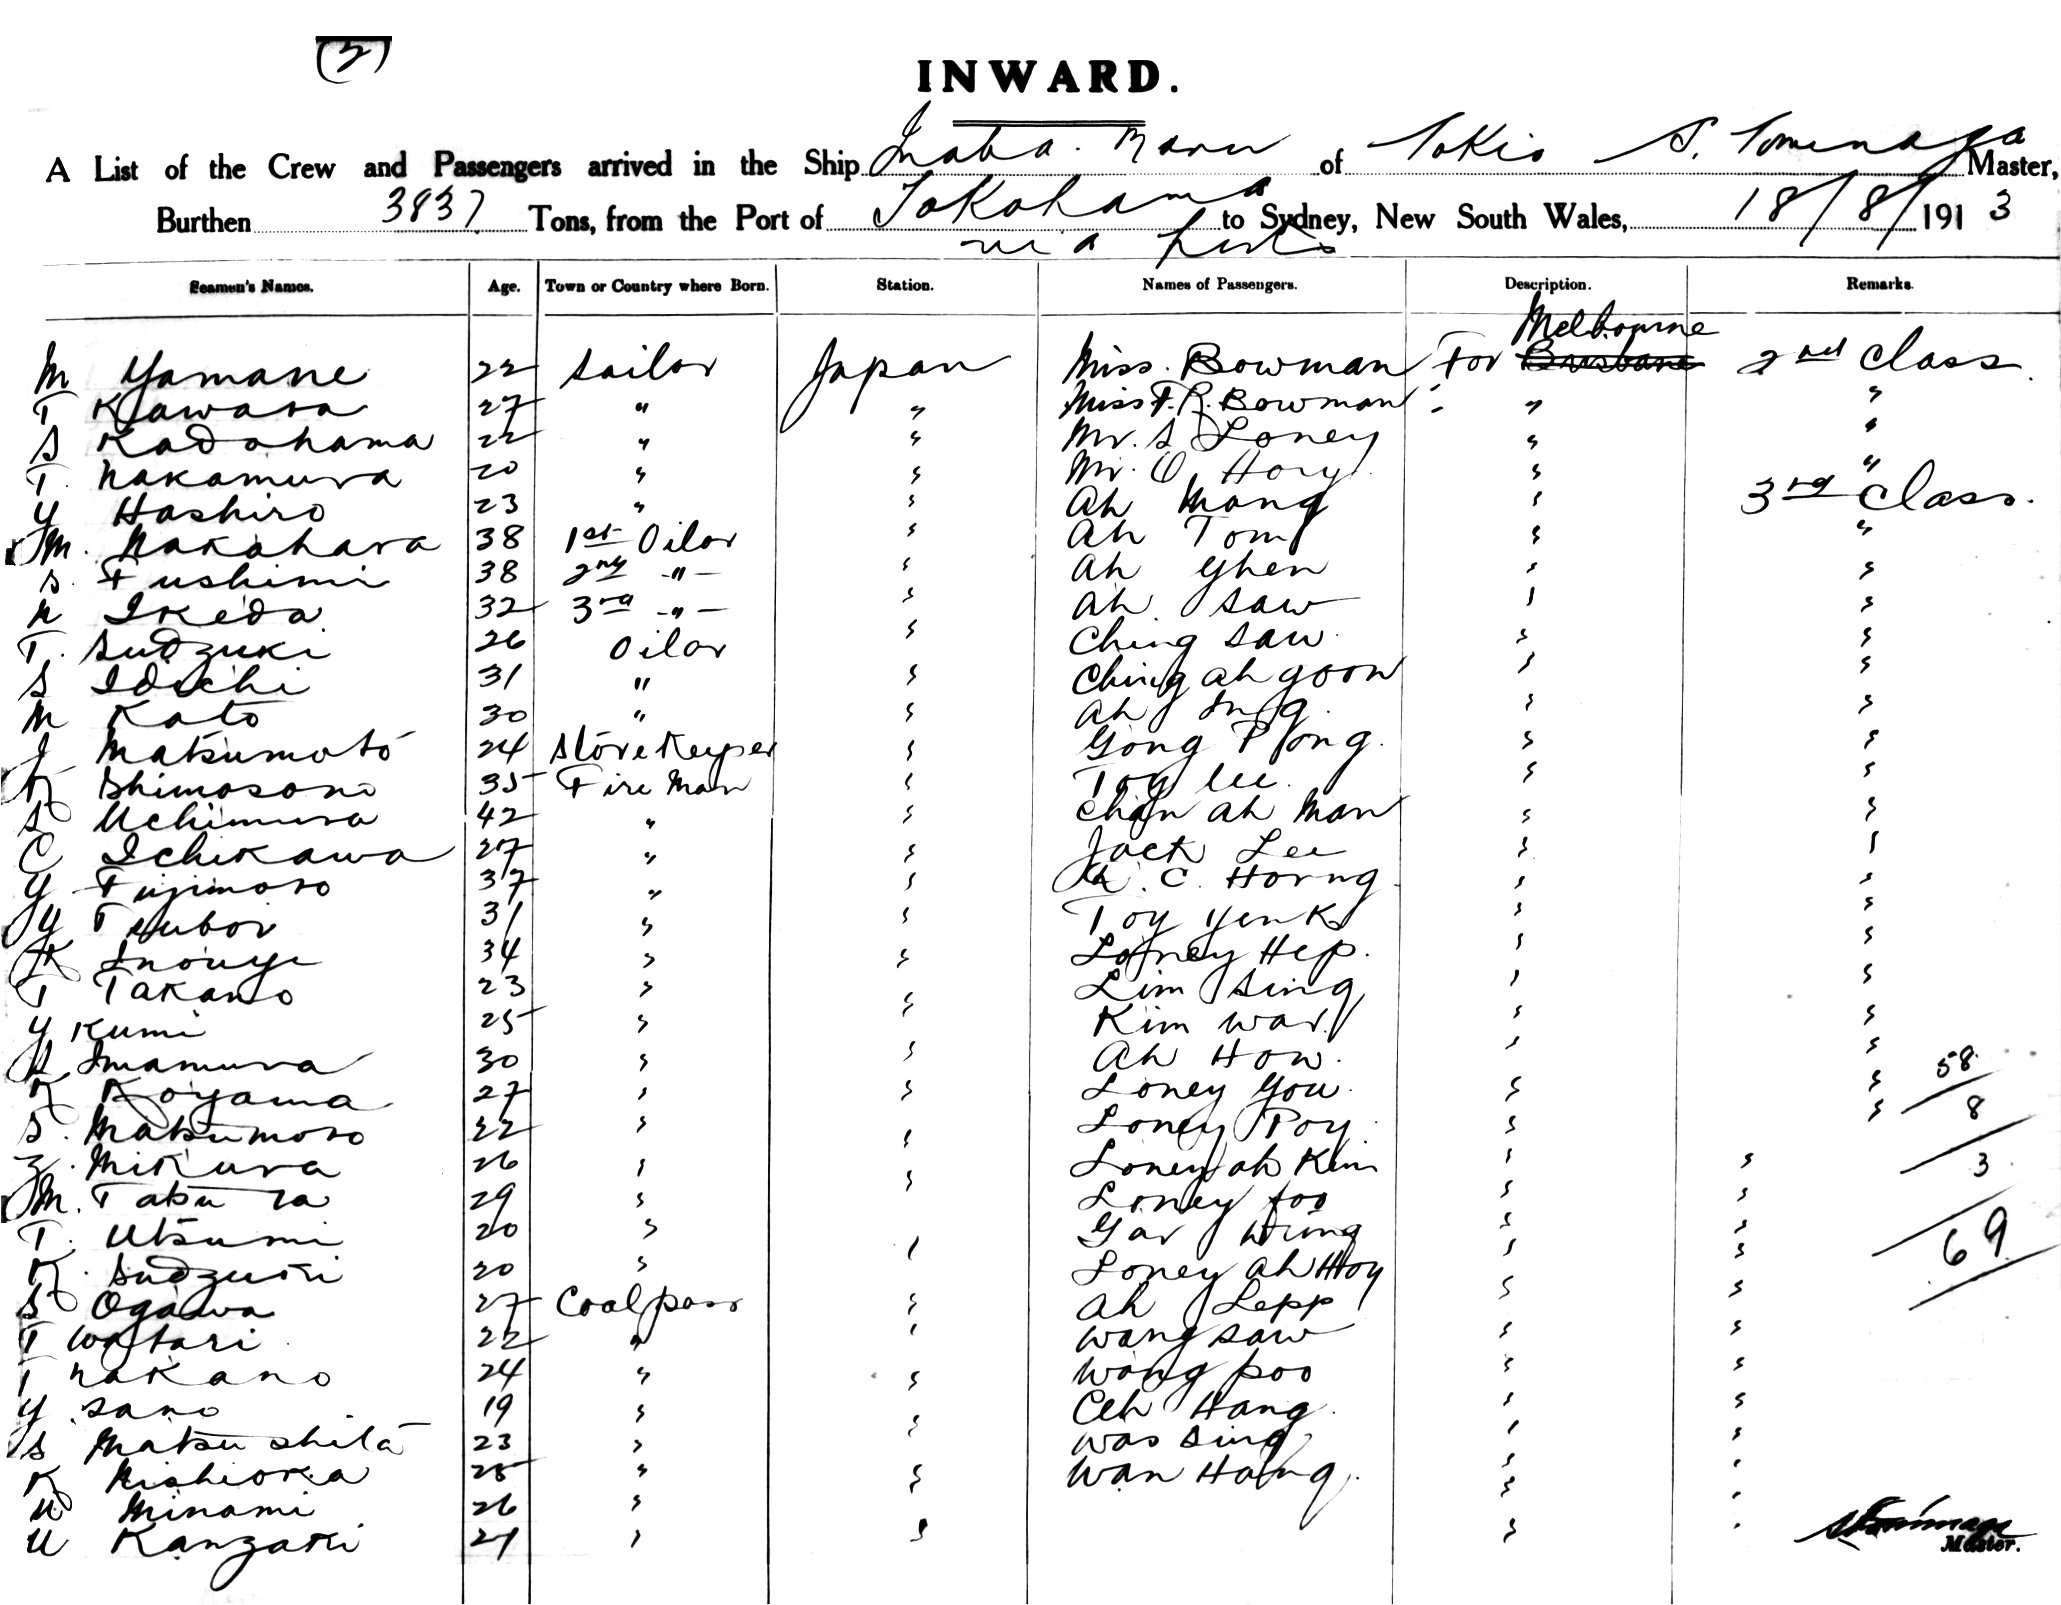 (2)
INWARD.
A List of the Crew and Passengers arrived in the Ship Inaba Maru of Tokio S. Tominaga Master,
Burthen 3837 Tons, from the Port of Yokohama to Sydney, New South Wales, 18/8/1913
via ports
Seamen's Names. Age. Town or Country where Born. Station. Names of Passengers. Description. Remarks.
Melbourne
M Yamane 22 Sailor Japan Miss. Bowman For Brisbane 2nd Class.
T Kawara 27 " " Miss F. R. Bowman " " "
S Kadohama 22 " " Mr. S Loney " "
T. Nakamura 20 " " Mr. O. Hory " "
Y Hashiro 23 " " Ah Mong " 3rd Class.
M. Nakahara 38 1st Oilor " Ah Tom " "
S. Fushimi 38 2nd -"- " Ah Ghen " "
N Ikeda 32 3rd -"- " Ah Saw " "
T. Sudzuki 26 Oilor " Ching Saw " "
S Idichi 31 " " Ching Ah Goon " "
M Kato 30 " " Ah Ing " "
J Matsumoto 24 Storekeeper " Gong Pong. " "
K Shimosono 35 Fire Man " Toy Lee. " "
S Uchimura 42 " " Chan Ah Man " "
C Ichikawa 27 " " Jack Lee " "
Y Fujimoto 37 " " C. Horng " "
Y Tsuboi 31 " " Toy Yenk " "
K Inouye 34 " " Loney Hep. " "
T Takano 23 " " Lim Sing " "
Y Kumi 25 " " Kim War. " "
S Imamura 30 " " Ah How. " " 58
K Koyama 27 " " Loney You. " "
S. Matsumoto 22 " " Loney Poy. " " 8
Z. Mikura 26 " " Loney Ah Kim " " 3
M. Tatsuta 29 " " Loney Foo " "
T. Utsumi 20 " Gar Wing " " 69
K. Sudzuki 20 " " Loney Ah Hoy " "
S Ogawa 27 Coalpass " Ah Lepp " "
T Watari 22 " " Wang Saw " "
T Nakano 24 " " Wong Poo " "
Y Sano 19 " " Ceh Hang. " "
S Matsushita 23 " " Was Sing " "
K Nishioka 25 " " Wan Hong. " "
U Minami 26 " " "
U Kanzaki 21 " " " "
Master.